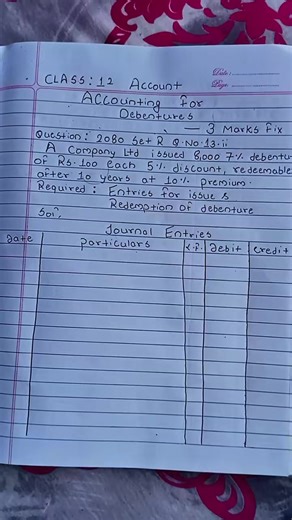 Date:
Page
CLASS: 12 Account
Accounting for
Debentures
— 3 Marks fix
Question: 2080 Set R Q.NO.13.ii
A Company Ltd issued 8,000 7% debentu
of Rs. 100 each 5% discount, redeemable
after 10 years at 10% premium.
Required: Entries for issue &
Redemption of debenture
Soln.
Journal Entries
Date particulars L.F. Debit credit